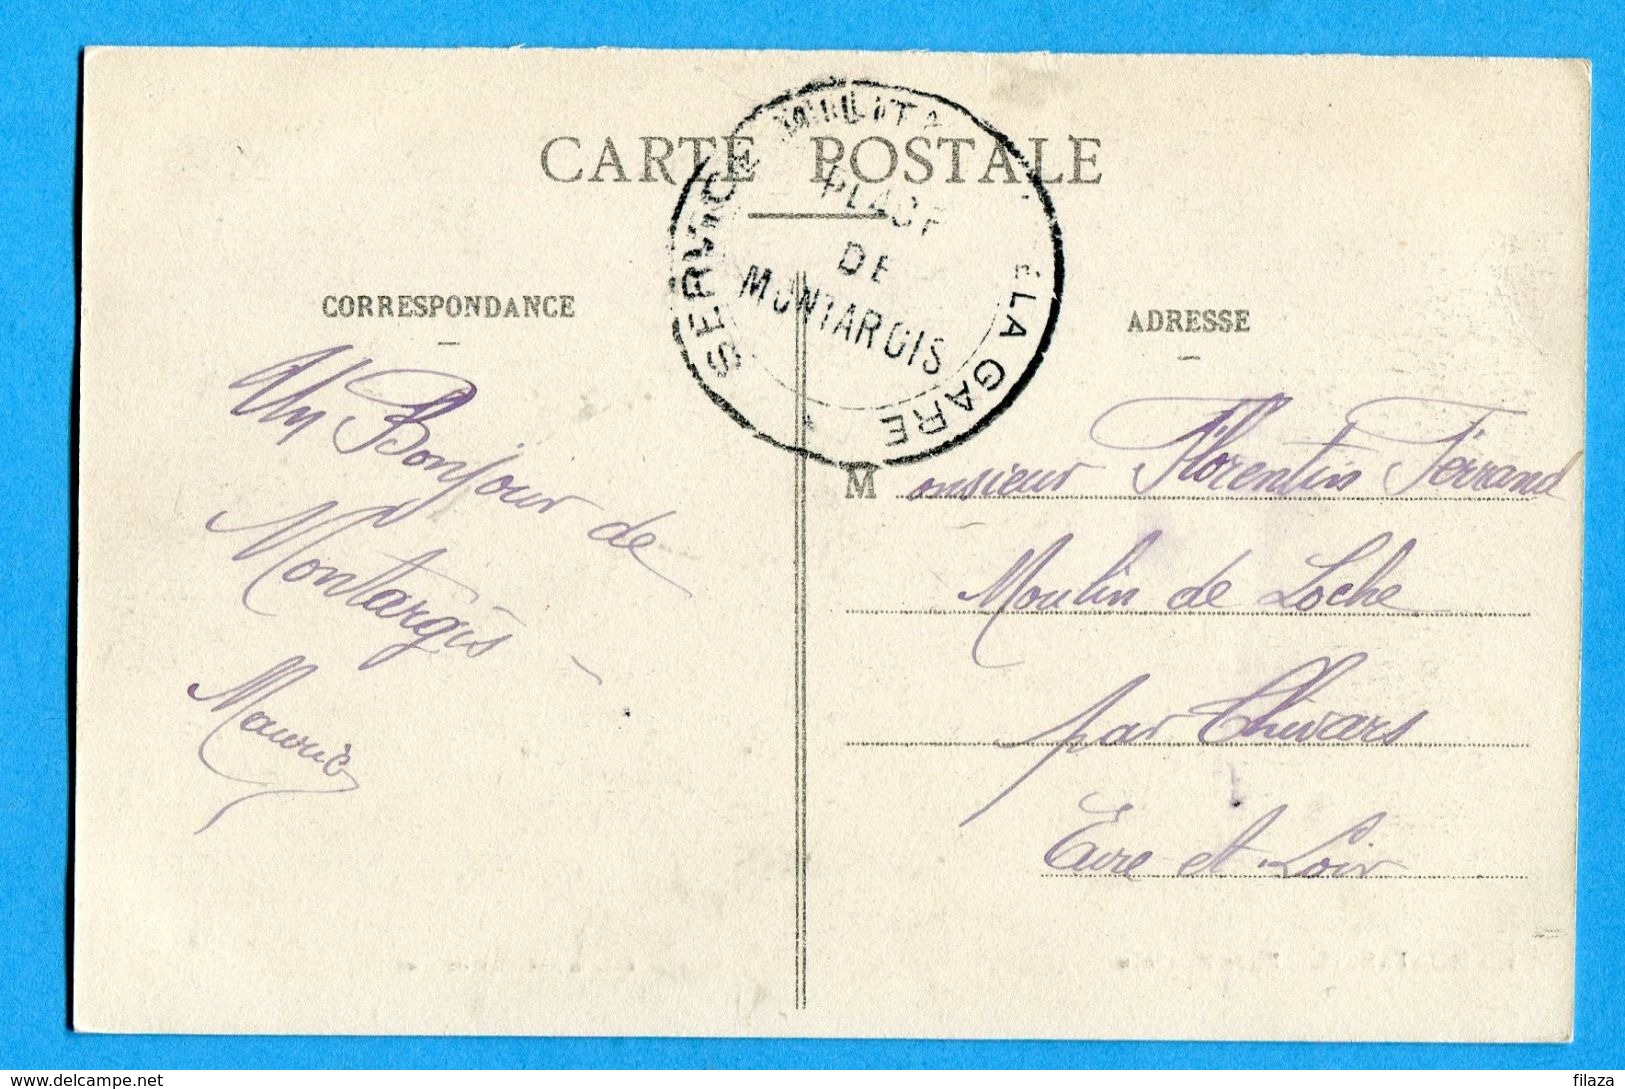 CARTE POSTALE
SERVICE MILITA
E LA GARE
PLACE
DE
MONTARGIS
CORRESPONDANCE
Un Bonjour de
Montargis -
Maurice
ADRESSE
Monsieur Florentin Ferrand
Moulin de Loche
par Thivars
Eure et Loir
delcampe.net
filaza